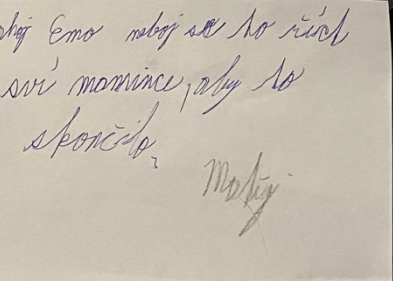 Emo neboj se to říct
sví mamince, aby to
skončilo,
Matěj